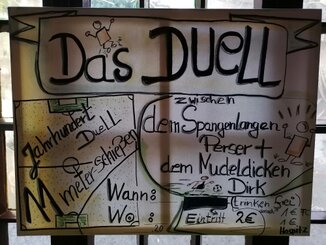 Das DUELL
Jahrhundert
Duell
Meterschießen
Wann:
Wo:
zwischen
dem Spangenlangen
Perser +
dem Nudeldicken
Dirk
Eintritt 2€
Trinken frei
1€
Hospitz
20